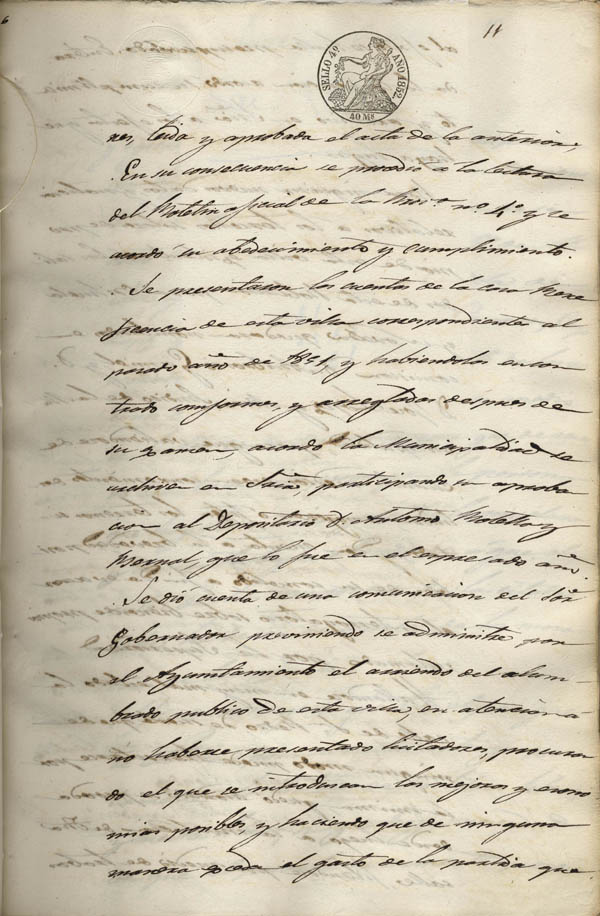 11
SELLO 4º AÑO 1852
40 Ms
nes, leida y aprobada el acta de la anterior.
En su consecuencia se procedio a la lectura
del Boletin oficial de la Prov.ª nº 4.º y se
acordó su obedecimiento y cumplimiento.
Se presentaron las cuentas de la casa Bene
ficencia de esta villa correspondientes al
pasado año de 1851, y habiendolas encon
trado conformes, y arregladas despues de
su examen, acordo la Municipalidad se
archiven en Sria, participando su aproba
cion al Depositario D. Antonio Botella y
Bernal, que lo fue en el espresado año.
Se dió cuenta de una comunicacion del Sor
Gobernador previniendo se administre por
el Ayuntamiento el arriendo del alum-
brado publico de esta villa, en atencion a
no haberse presentado licitadores, procuran
do el que se introduzcan las mejoras y econo
mias posibles, y haciendo que de ninguna
manera exceda el gasto de la partida que